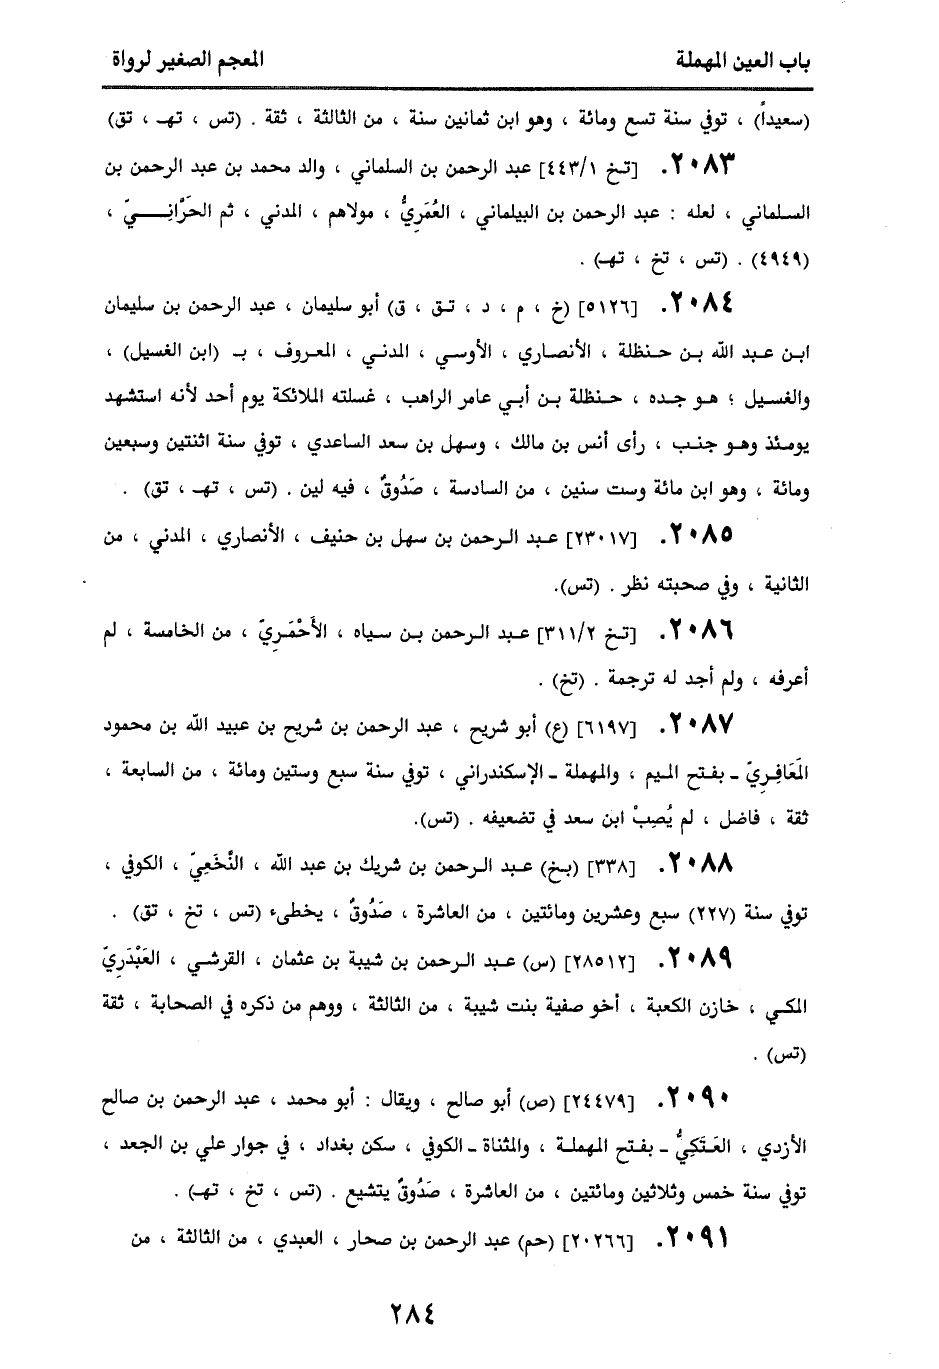 باب العين المهملة
المعجم الصغير لرواة
(سعيداً) ، توفي سنة تسع ومائة ، وهو ابن ثمانين سنة ، من الثالثة ، ثقة . (تس ، تهـ ، تق)
٢٠٨٣. [تخ ٤٤٣/١] عبد الرحمن بن السلماني ، والد محمد بن عبد الرحمن بن
السلماني ، لعله : عبد الرحمن بن البيلماني ، العُمَرِيُّ ، مولاهم ، المدني ، ثم الحَرَّانِـــيّ ،
(٤٩٤٩) . (تس ، تخ ، تهـ) .
٢٠٨٤. [٥١٢٦] (خ ، م ، د ، تـق ، ق) أبو سليمان ، عبد الرحمن بن سليمان
ابـن عـبد الله بـن حـنظلة ، الأنصـاري ، الأوسـي ، المدنـي ، المعـروف ، بـ (ابن الغسيل) ،
والغسـيل ؛ هـو جـده ، حـنظلة بـن أبـي عامر الراهب ، غسلته الملائكة يوم أحد لأنه استشهد
يومـئذ وهـو جنـب ، رأى أنس بن مالك ، وسهل بن سعد الساعدي ، توفي سنة اثنتين وسبعين
ومائة ، وهو ابن مائة وست سنين ، من السادسة ، صَدُوقٌ ، فيه لين . (تس ، تهـ ، تق) .
٢٠٨٥. [٢٣٠١٧] عـبد الـرحمن بـن سهل بـن حنيف ، الأنصاري ، المدني ، من
الثانية ، وفي صحبته نظر . (تس).
٢٠٨٦. [تـخ ٣١١/٢] عـبد الـرحمن بـن سـياه ، الأَحْمَـرِيّ ، من الخامسة ، لم
أعرفه ، ولم أجد له ترجمة . (تخ) .
٢٠٨٧. [٦١٩٧] (ع) أبو شريح ، عبد الرحمن بن شريح بن عبيد الله بن محمود
المَعَافِـريّ ـ بفـتح المـيم ، والمهملة ـ الإسكندراني ، توفي سنة سبع وستين ومائة ، من السابعة ،
ثقة ، فاضل ، لم يُصِبْ ابن سعد في تضعيفه . (تس).
٢٠٨٨. [٣٣٨] (بـخ) عـبد الـرحمن بن شريك بن عبد الله ، النَّخَعِيّ ، الكوفي ،
توفي سنة (٢٢٧) سبع وعشرين ومائتين ، من العاشرة ، صَدُوقٌ ، يخطىء (تس ، تخ ، تق) .
٢٠٨٩. [٢٨٥١٢] (س) عـبد الـرحمن بن شيبة بن عثمان ، القرشـي ، العَبْدَرِيّ
المكـي ، خازن الكعبة ، أخو صفية بنت شيبة ، من الثالثة ، ووهم من ذكره في الصحابة ، ثقة
(تس) .
٢٠٩٠. [٢٤٤٧٩] (ص) أبو صالح ، ويقال : أبو محمد ، عبد الرحمن بن صالح
الأزدي ، العَـتَكِيُّ ـ بفـتح المهملـة ، والمثناة ـ الكوفي ، سكن بغداد ، في جوار علي بن الجعد ،
توفي سنة خمس وثلاثين ومائتين ، من العاشرة ، صَدُوقٌ يتشيع . (تس ، تخ ، تهـ) .
٢٠٩١. [٢٠٢٦٦] (حم) عبد الرحمن بن صحار ، العبدي ، من الثالثة ، من
٢٨٤